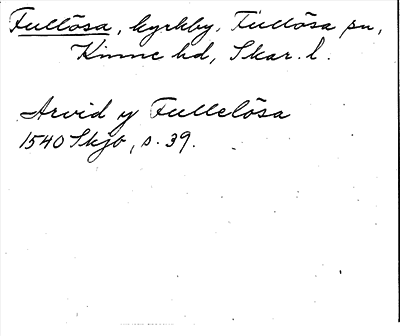 Fullösa, kyrkby, Fullösa sn,
Kinne hd, Skar. l.
Arvid y Fullelösa
1540 Skjb, s. 39.